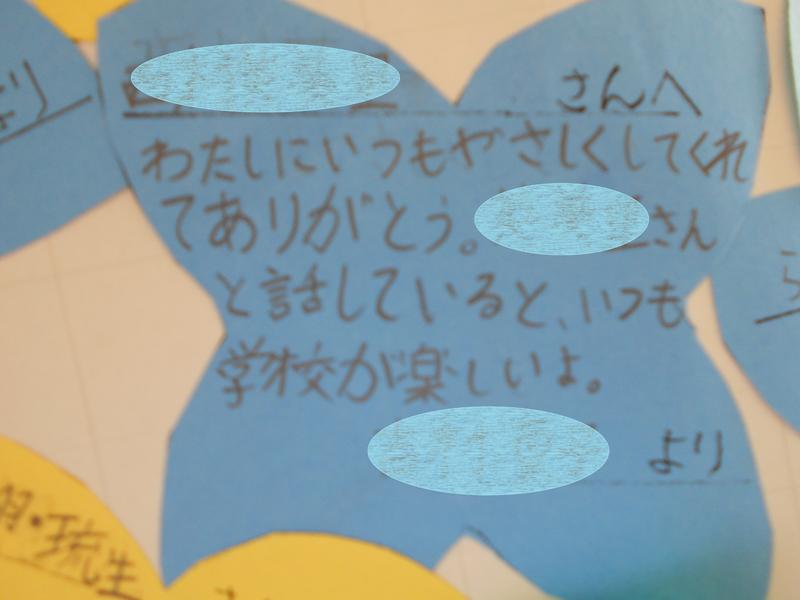 さんへ
わたしにいつもやさしくしてくれ
てありがとう。さん
と話していると、いつも
学校が楽しいよ。
より
より
・琉生